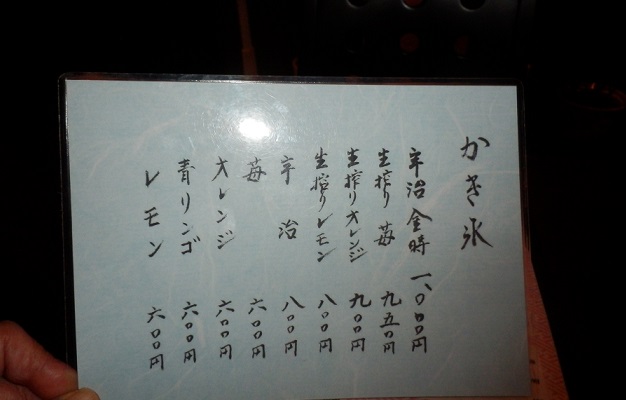 かき氷
宇治金時 一、〇〇〇円
生搾り苺 九五〇円
生搾りオレンジ 九〇〇円
生搾りレモン 八〇〇円
宇治 八〇〇円
苺 六〇〇円
オレンジ 六〇〇円
青リンゴ 六〇〇円
レモン 六〇〇円